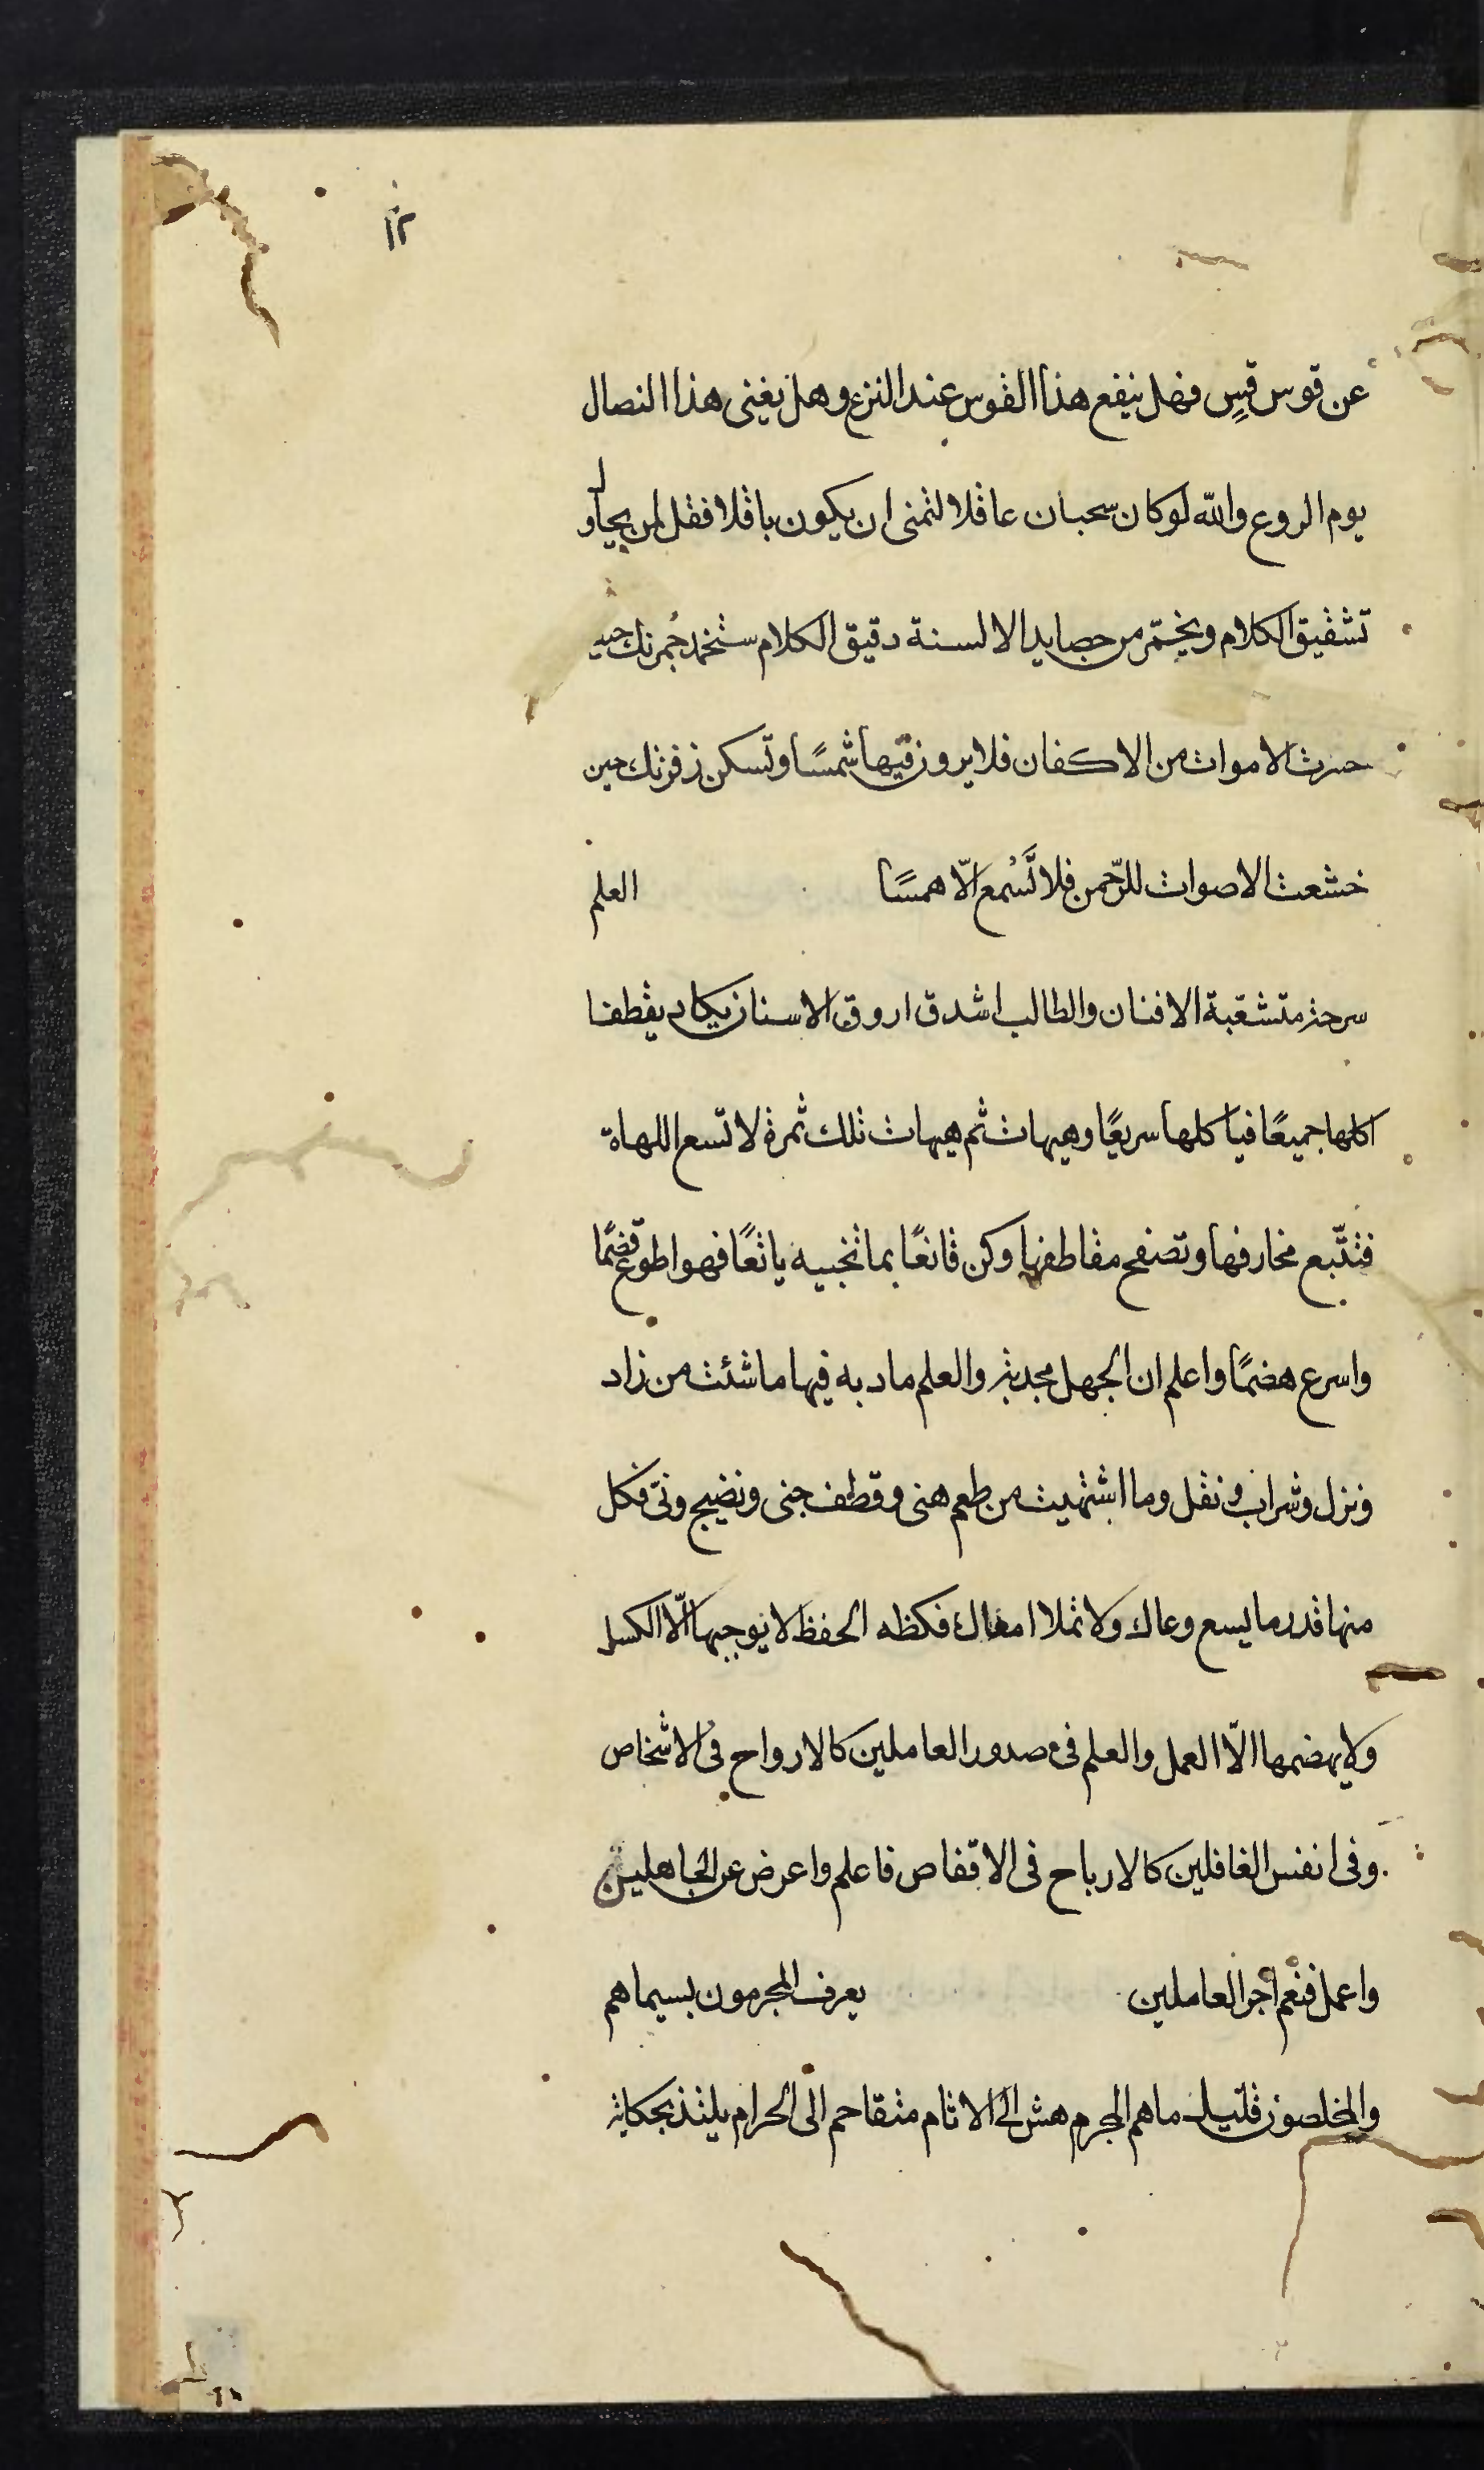 ١٢
عن قوس قسٍ فهل ينفع هذا القوس عند النزع وهل يغنى هذا النصال
يوم الروع والله لو كان سحبان عاقلا لتمنى ان يكون باقلا فقل لمن يحاول
تشقيق الكلام ويختمر من حصايد الالسنة دقيق الكلام ستخمد جُمرتك حين
حسرت الاموات من الاكفان فلا يرون فيها شمسًا وتسكن زفرتك حين
خشعت الاصوات للرّحمن فلا تَسْمع الّا همسًا العلم
سرحة متشعبة الافنان والطالب اشدق اروق الاسنان يكاد يقطفا
اكلها جميعًا فياكلها سريعًا وهيهات ثم هيهات تلك ثمرة لا تسع اللهاة
فتتّبع مخارفها وتصفح مقاطفها وكن قانعًا بما تجنيه يانعًا فهو اطوع قضمًا
واسرع هضمًا واعلم ان الجهل مجدبة والعلم مادبه فيها ما شئت من زاد
ونزل وشراب ونقل وما اشتهيت من طعم هنى وقطف جنى ونضيج ونىّ فكل
منها قدر ما يسع وعاك ولا تملا امعاك فكظه الحفظ لا يوجبها الّا الكسل
ولا يهضمها الّا العمل والعلم فى صدور العاملين كالارواح فى الاشخاص
وفى انفس الغافلين كالارياح فى الاقفاص فاعلم واعرض عن الجاهلين
واعمل فنعم اجر العاملين يعرف المجرمون بسيماهم
والمخلصون قليل ما هم المجرم هش الى الاثام متقاحم الى الحرام يلتذ بحكاية